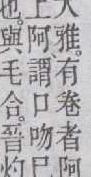 大雅。有卷者阿
上阿謂口吻
也。與毛合。晉灼